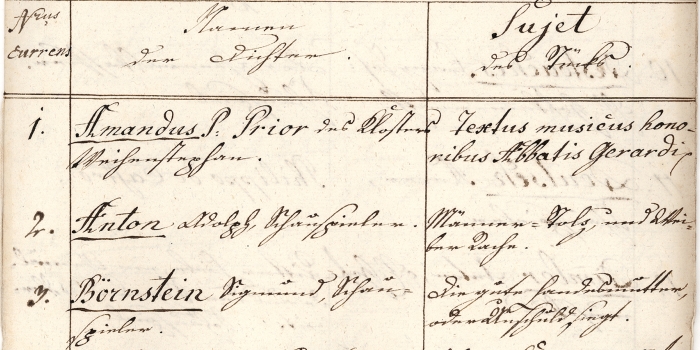 Nrus
currens
Namen
der Dichter.
Sujet
des Stücks.
1. Amandus P: Prior des Klosters
Weihenstephan.
Textus musicus hono-
ribus Abbatis Gerardi
2. Anton Adolph, Schauspieler.
Männer-Stolz, und Wei-
ber Rache.
3. Börnstein Sigmund, Schau-
spieler.
Die gute Landesmutter,
oder Unschuld siegt.